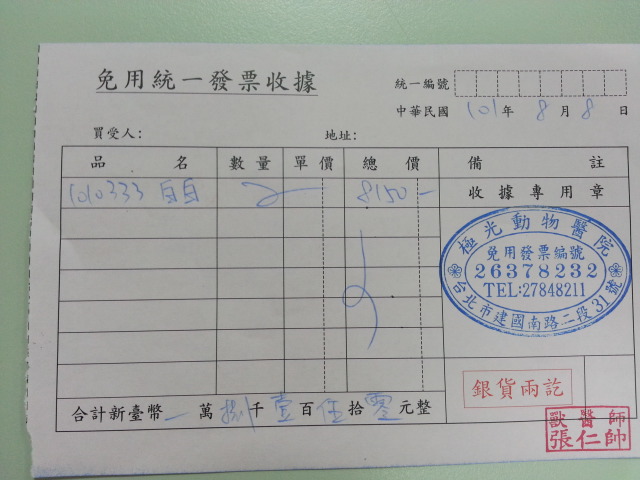 免用統一發票收據
統一編號
中華民國 101年 8月 8日
買受人: 地址:
品名 數量 單價 總價 備註
1010333 8150- 收據專用章
極光動物醫院
免用發票編號
26378232
TEL:27848211
台北市建國南路二段31號
銀貨兩訖
合計新臺幣 萬捌千壹百伍拾零元整
獸醫師
張仁帥